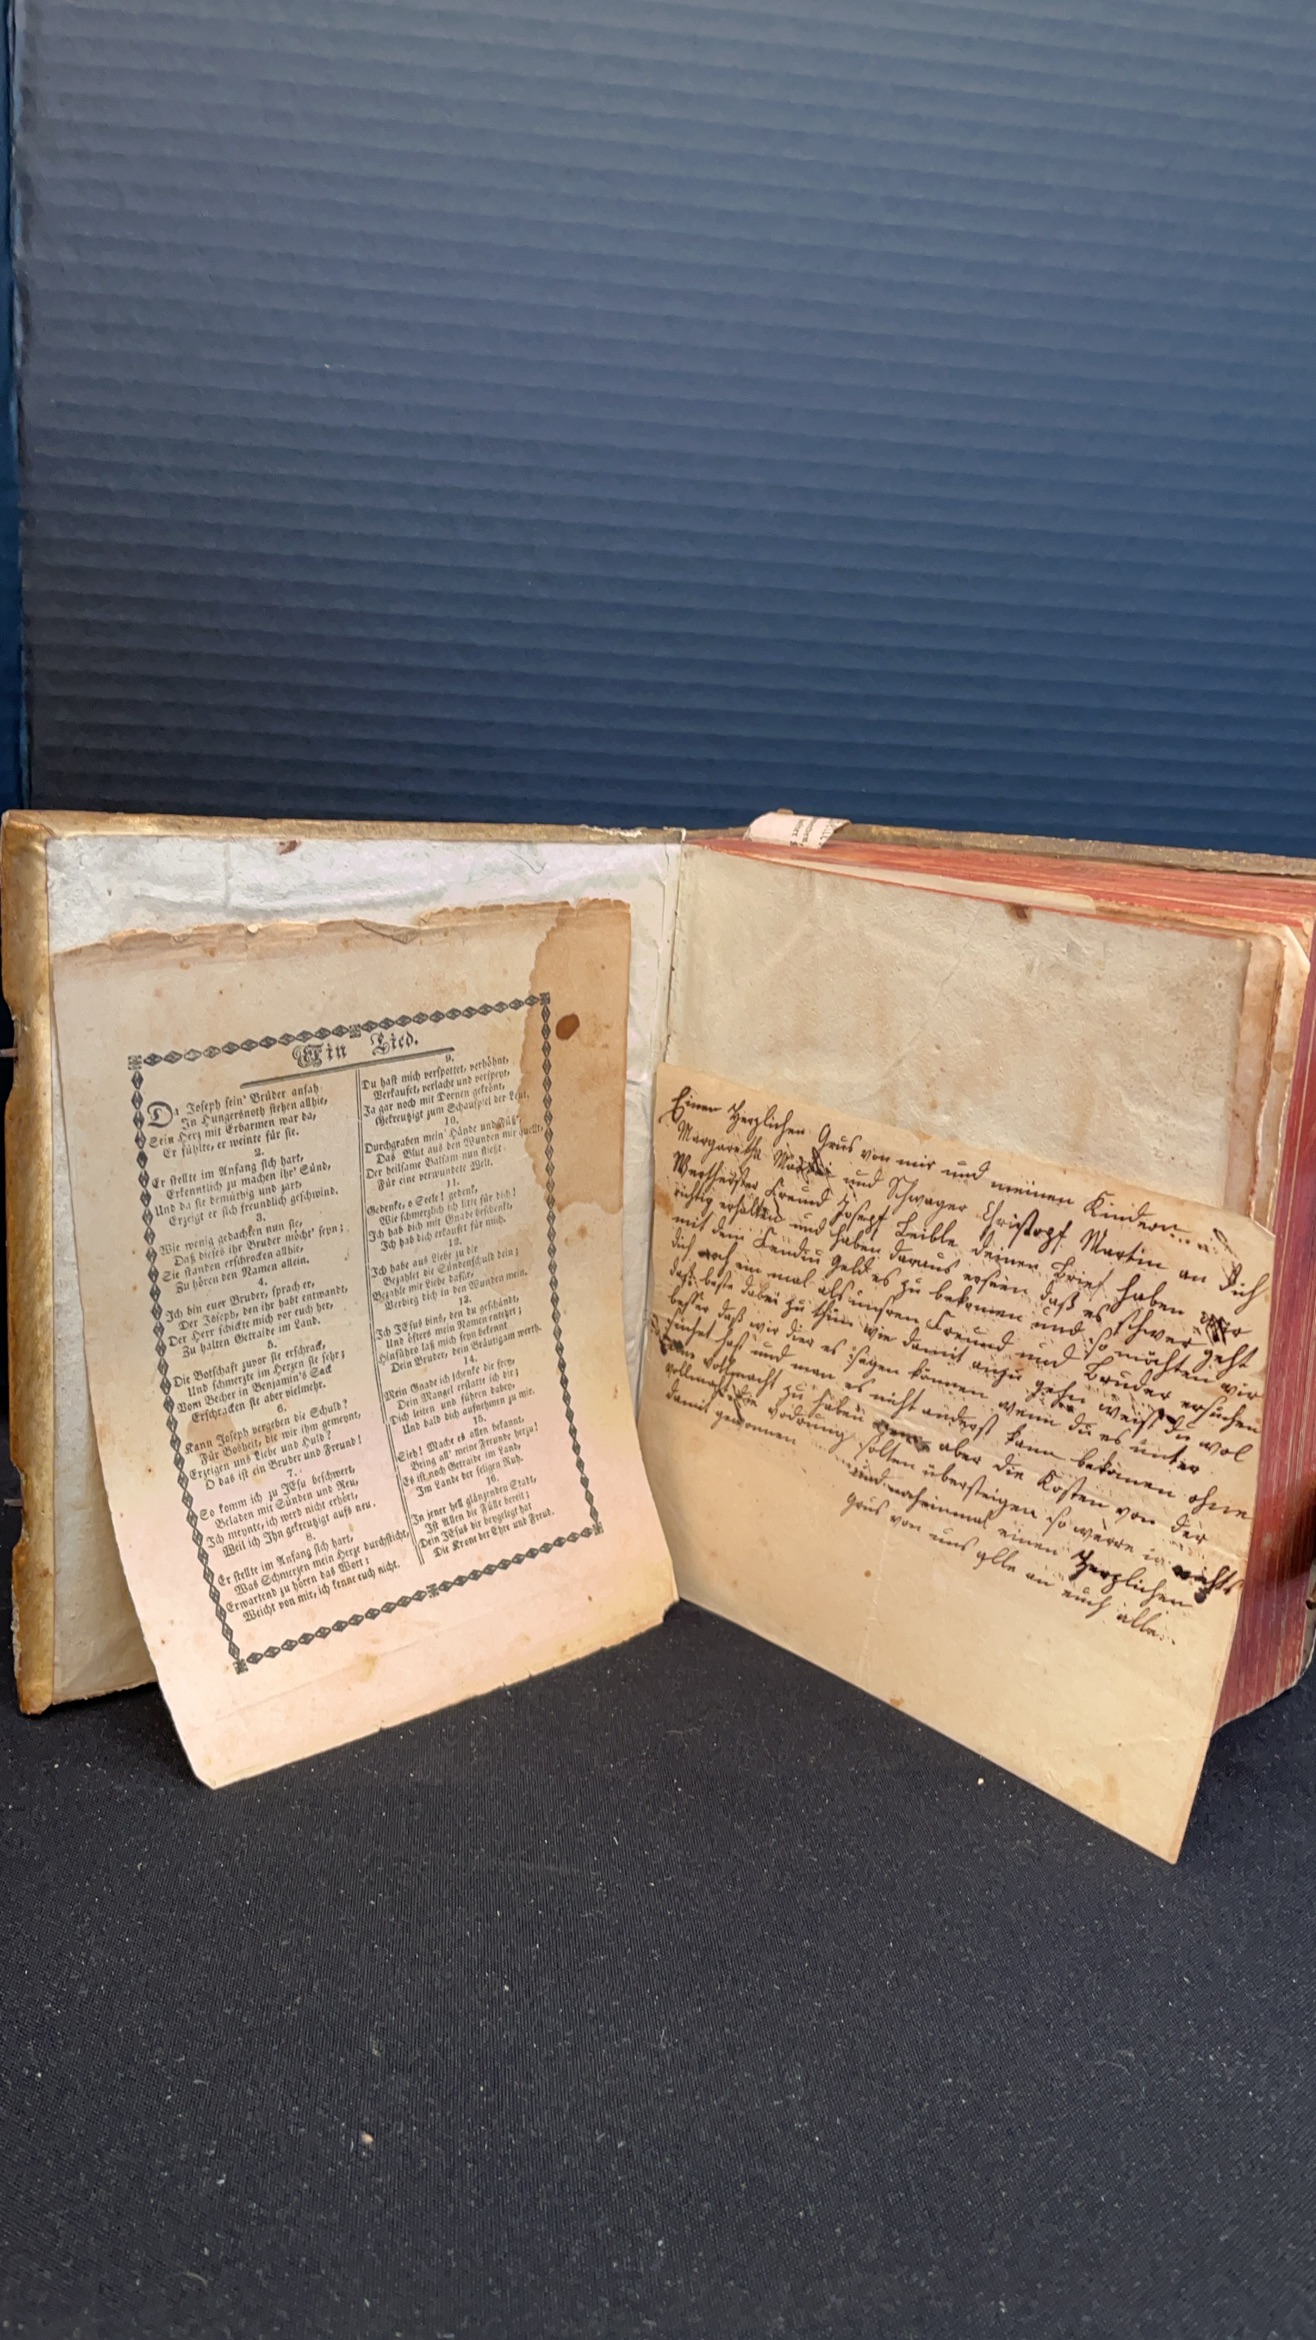 Ein Lied.
Da Joseph sein' Brüder ansah
In Hungersnoth stehen allhie,
Sein Herz mit Erbarmen war da,
Er fühlte, er weinte für sie.
2.
Er stellte im Anfang sich hart,
Erkenntlich zu machen ihr' Sünd,
Und da sie demüthig und zart,
Erzeigt er sich freundlich geschwind.
3.
Wie wenig gedachten nun sie,
Daß dieses ihr Bruder möcht' seyn;
Sie standen erschrocken allhie,
Zu hören den Namen allein.
4.
Ich bin euer Bruder, sprach er,
Der Joseph, den ihr habt entwandt,
Der Herr schickte mich vor euch her,
Zu halten Getraide im Land.
5.
Die Botschaft zuvor sie erschrack,
Und schmerzte im Herzen sie sehr;
Vom Becher in Benjamin's Sack
Erschracken sie aber vielmehr.
6.
Kann Joseph vergeben die Schuld?
Für Bosheit, die wir ihm gemeynt,
Erzeigen uns Liebe und Huld?
O das ist ein Bruder und Freund!
7.
So komm ich zu JEsu beschwert,
Beladen mit Sünden und Reu,
Ich meynte, ich werd nicht erhört,
Weil ich Ihn gekreutzigt aufs neu.
8.
Er stellte im Anfang sich hart,
Was Schmerzen mein Herze durchsticht,
Erwartend zu hören das Wort:
Weicht von mir, ich kenne euch nicht.
9.
Du hast mich verspottet, verhöhnt,
Verkaufet, verlacht und verspeyt,
Ja gar noch mit Dornen gekrönt,
Gekreutzigt zum Schauspiel der Leut.
10.
Durchgraben mein' Hände und Füß',
Das Blut aus den Wunden mir quellt,
Der heilsame Balsam nun fließt
Für eine verwundete Welt.
11.
Gedenke, o Seele! gedenk,
Wie schmerzlich ich litte für dich!
Ich hab dich mit Gnade beschenkt,
Ich hab dich erkauft für mich.
12.
Ich habe aus Liebe zu dir
Bezahlet die Sündenschuld dein;
Bezahle mit Liebe dafür,
Verbirg dich in den Wunden mein.
13.
Ich JEsus bins, den du geschändt,
Und öfters mein Namen entehrt;
Hinführo laß mich seyn bekennt
Dein Bruder, dein Bräutigam werth.
14.
Mein Gnade ich schenke dir frey,
Dein Mangel erstatte ich dir;
Dich leiten und führen dabey,
Und bald dich aufnehmen zu mir.
15.
Sieh! Mache es allen bekannt,
Bring all' meine Freunde herzu!
Es ist noch Getraide im Land,
Im Lande der seligen Ruh.
16.
In jener hell glänzenden Stadt,
Ist Allen die Fülle bereit;
Dein JEsus dir beygelegt hat
Die Krone der Ehr und Freud.
Einen Herzlichen Grus von mir und meinen Kindern
Margaretha und Schwager Christoph Martin an Dich
Werthester Freund Joseph Leible deinen Brief haben wir
richtig erhalten und haben daraus ersehen daß es schwer geht
mit dem Geld es zu bekomen und so möchten wir
dich noch ein mal als unsren Freund und Bruder ersuchen
daß beste dabei zu thun wie damit um zu gehn weist du wol
besser daß wir dier es sagen können wenn du es unter
suchet hast und man es nicht anderst kann bekomen ohne
eine vollmacht zu haben aber die Kosten von der
vollmacht die vodrung solten übersteigen so werre ja nichts
damit gewonnen und nocheinmal einen Herzlichen
Grus von uns alle an euch alle.